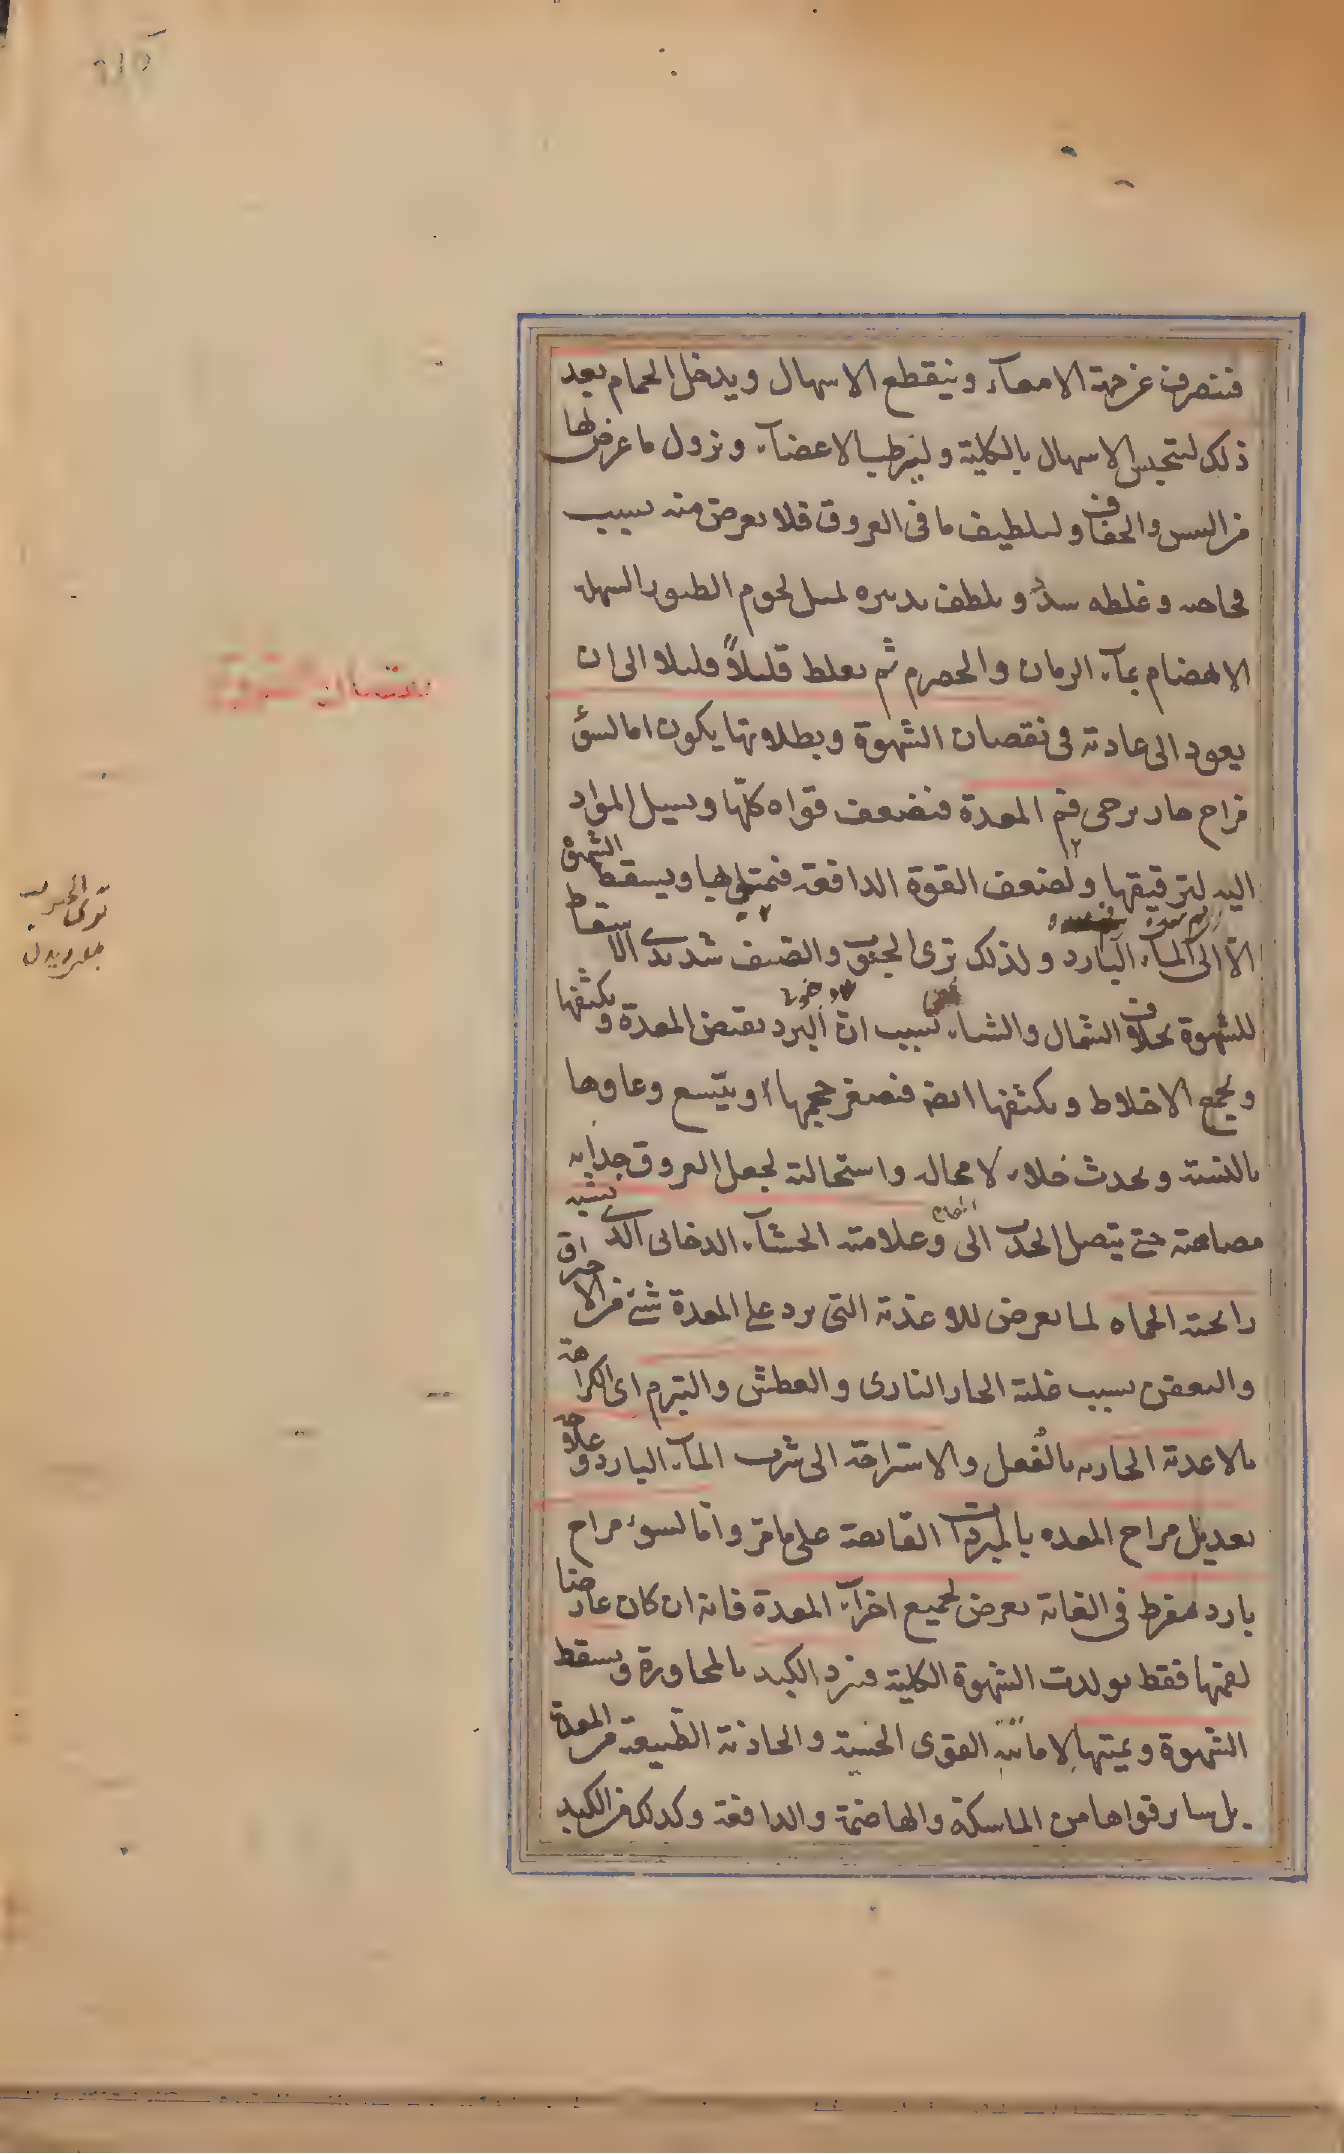 فتنصرف عن جهة الامعآء وينقطع الاسهال ويدخل الحمام بعد
ذلك لتحبس الاسهال بالكلية وليرطب الاعضآء وتزول ما عرض لها
من اليبس والجفاف ولتلطيف ما في العروق فلا يعرض منه بسبب
فجاجته وغلظه سدد ويلطف تدبيره بمثل لحوم الطيور السهلة
الانهضام بمآء الرمان والحصرم ثم يغلظ قليلاً قليلا الى ان
يعود الى عادته في نقصان الشهوة وبطلانها يكون اما لسوء
مزاج حار يرخى فم المعدة فتضعف قواه كلّها ويسيل المواد
اليه لترقيقها ولضعف القوة الدافعة فتمتلى بها ويسقط الشهوة
الّا الى المآء البارد ولذلك ترى الجنوب والصيف شديدى الاسقاط
للشهوة بخلاف الشمال والشتاء بسبب ان البرد يقبض المعدة ويكثفها
ويجمع الاخلاط ويكثفها ايضا فتصغر حجمها ويتسع وعاوها
بالنسبة ويحدث خلاء لا محالة واستحالة لجعل العروق جذابة
مصاصة حتى يتصل الجذب الى وعلامته الجشآء الدخانى الذى يشبه
رائحته الحماه لما يعرض للاغذية التى يرد على المعدة شئ من الاحتراق
والتعفن بسبب غلبة الحار النارى والعطش والتبرم اى الكراهة
بالاغذية الحارة بالفعل والاستراحة الى شرب المآء البارد وعلاجه
تعديل مزاج المعدة بالمبردات القابضة على ما مر واما لسوء مزاج
بارد مفرط في الغاية يعرض لجميع اجزآء المعدة فانه ان كان عارضا
لفمها فقط تولدت الشهوة الكلبية فيبرد الكبد بالمجاورة ويسقط
الشهوة ويميتها لاماتته القوى الحسية والجاذبة الطبيعية من المعدة
بل سائر قواها من الماسكة والهاضمة والدافعة وكذلك من الكبد
نقصان الشهوة